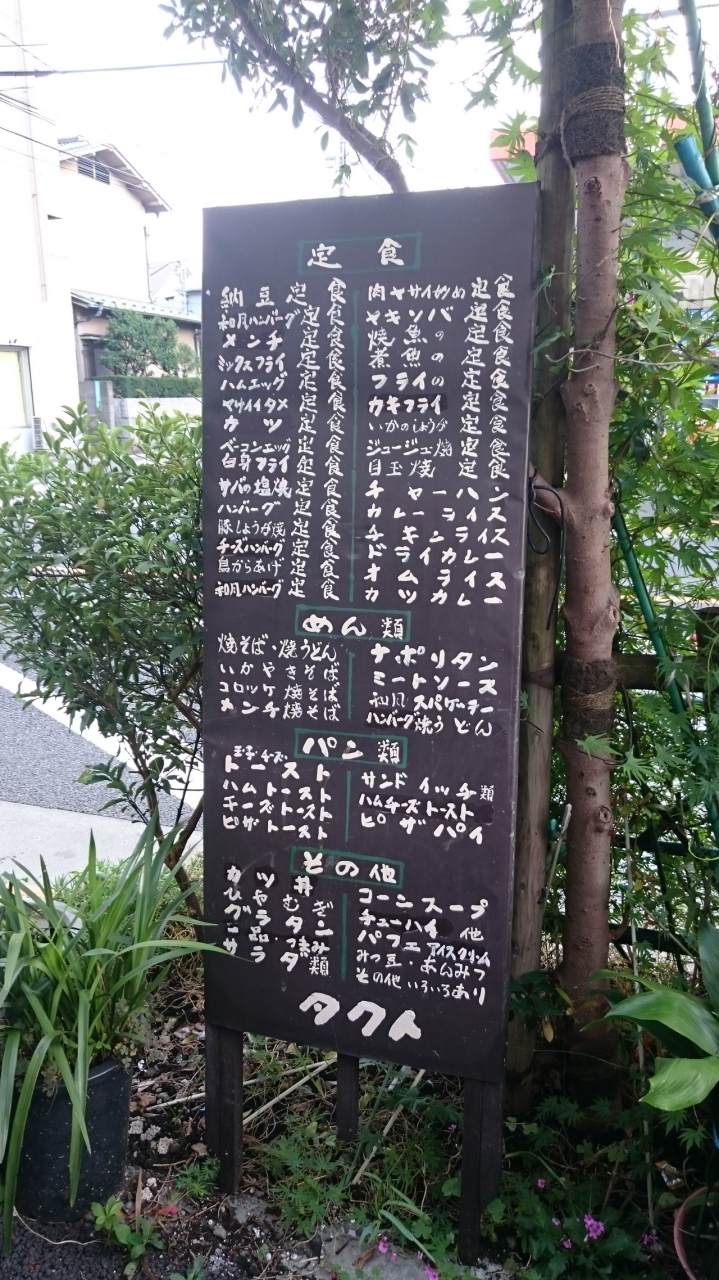 定食
納豆定食
和風ハンバーグ定食
メンチ定食
ミックスフライ定食
ハムエッグ定食
ヤサイイタメ定食
カツ定食
ベーコンエッグ定食
白身フライ定食
サバの塩焼定食
ハンバーグ定食
豚しょうが焼定食
チーズハンバーグ定食
鳥からあげ定食
和風ハンバーグ定食
肉ヤサイ炒め定食
ヤキソバ定食
焼魚の定食
煮魚の定食
フライの定食
カキフライ定食
いかのしょうが定食
ジュージュー焼定食
目玉焼定食
チャーハン
カレーライス
チキンライス
ドライカレー
オムライス
カツカレー
めん類
焼そば・焼うどん
いかやきそば
コロッケ焼そば
メンチ焼そば
ナポリタン
ミートソース
和風スパゲーテー
ハンバーグ焼うどん
パン類
玉子・チーズ
トースト
ハムトースト
チーズトースト
ピザトースト
サンドイッチ類
ハムチーズトースト
ピザパイ
その他
カツ丼
ひやむぎ
グラタン
一品つまみ
サラダ類
コーンスープ
チューハイ他
パフェアイスクリーム
みつ豆・あんみつ
その他いろいろあり
タクト